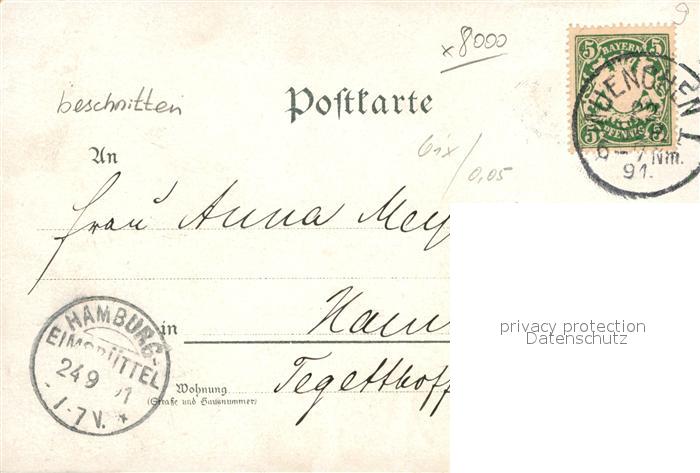 x8000
beschnitten
Postkarte
5 BAYERN 5
5 PFENNIG 5
MUENCHEN I
6-7 Nm.
91.
6ix/0,05
An
Frau Anna Mey
in Ham
HAMBURG-
EIMSBÜTTEL
24 9 91
1-7 V. *
Wohnung
(Straße und Hausnummer)
Tegetthoff
privacy protection
Datenschutz